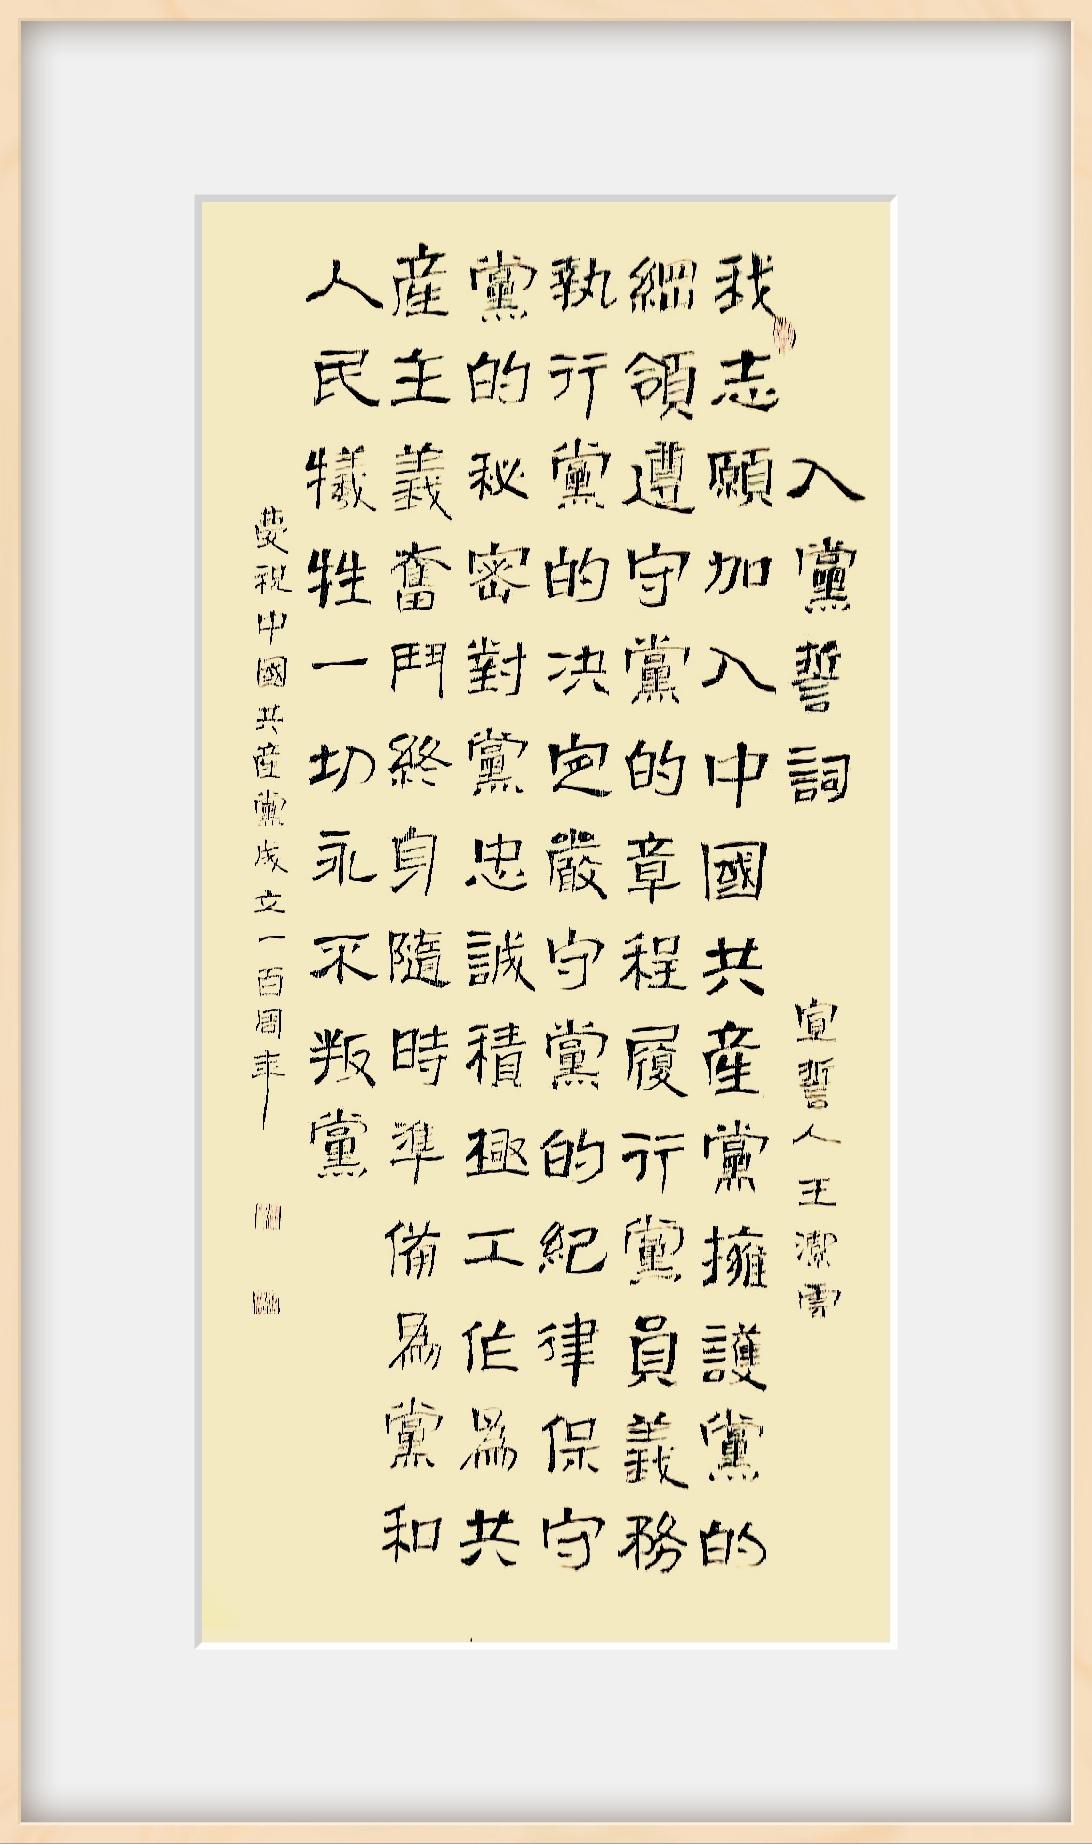 入黨誓詞
宣誓人王潔
我志願加入中國共産黨擁護黨的
綱領遵守黨的章程履行黨員義務
執行黨的决定嚴守黨的紀律保守
黨的秘密對黨忠誠積極工作爲共
産主義奮鬥終身隨時準備爲黨和
人民犧牲一切永不叛黨
慶祝中國共産黨成立一百周年